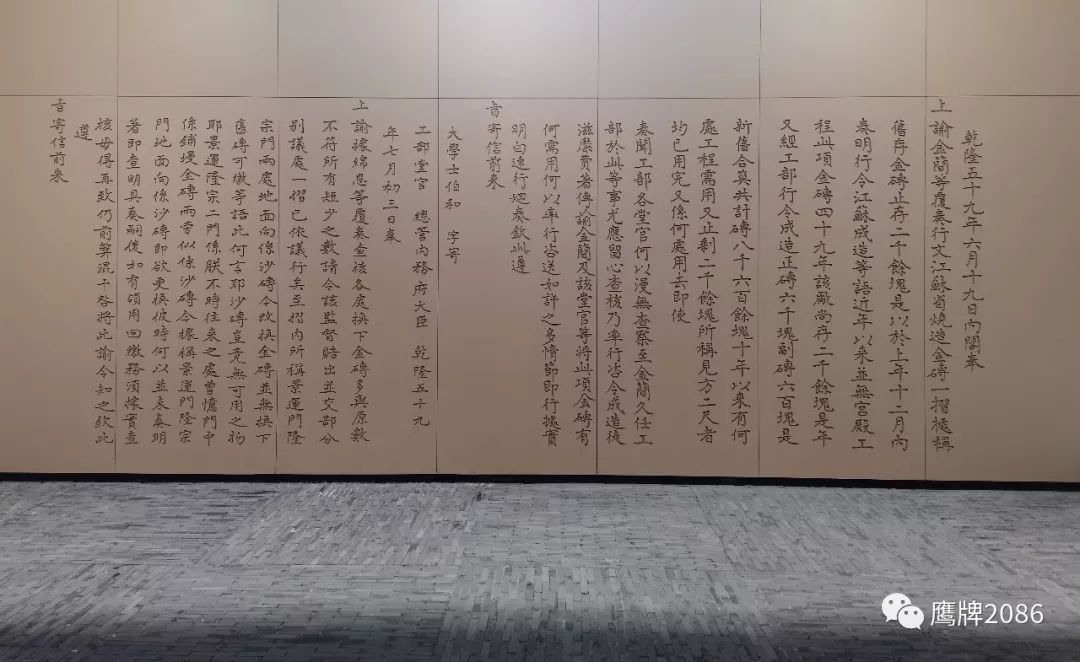 乾隆五十九年六月十九日內閣奉
上諭金簡等覆奏行文江蘇省燒造金磚一摺據稱
舊存金磚止存二千餘塊是以於上年十二月內
奏明行令江蘇成造等語近年以來並無宮殿工
程此項金磚四十九年該廠尚存二千餘塊是年
又經工部行令成造正磚六千塊副磚六百塊是
新舊合算共計磚八千六百餘塊十年以來有何
處工程需用又止剩二千餘塊所稱見方二尺者
均已用完又係何處用去即使
奏聞工部各堂官何以漫無查察至金簡久任工
部於此等事尤應留心查核乃率行咨令成造徒
滋縻費著傳諭金簡及該堂官等將此項金磚有
何需用何以率行咨送如許之多情節即行據實
明白速行迴奏欽此遵
旨寄信前來
大學士伯和 字寄
工部堂官 總管內務府大臣 乾隆五十九
年七月初三日奉
上諭據綿恩等覆奏查核各處換下金磚多與原數
不符所有短少之數請令該監督賠出並交部分
別議處一摺已依議行矣至摺內所稱景運門隆
宗門兩處地面向係沙磚今改換金磚並無換下
舊磚可繳等語此何言耶沙磚豈竟無可用之物
耶景運隆宗二門係朕不時往來之處曾憶門中
係鋪墁金磚兩旁似係沙磚今據稱景運門隆宗
門地面向係沙磚即欲更換彼時何以並未奏明
著即查明具奏嗣後如有領用回繳務須據實查
核毋得再致仍前弊混干咎將此諭令知之欽此
遵
旨寄信前來
鹰牌2086